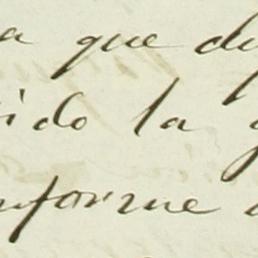 a que d
ido la
nforme